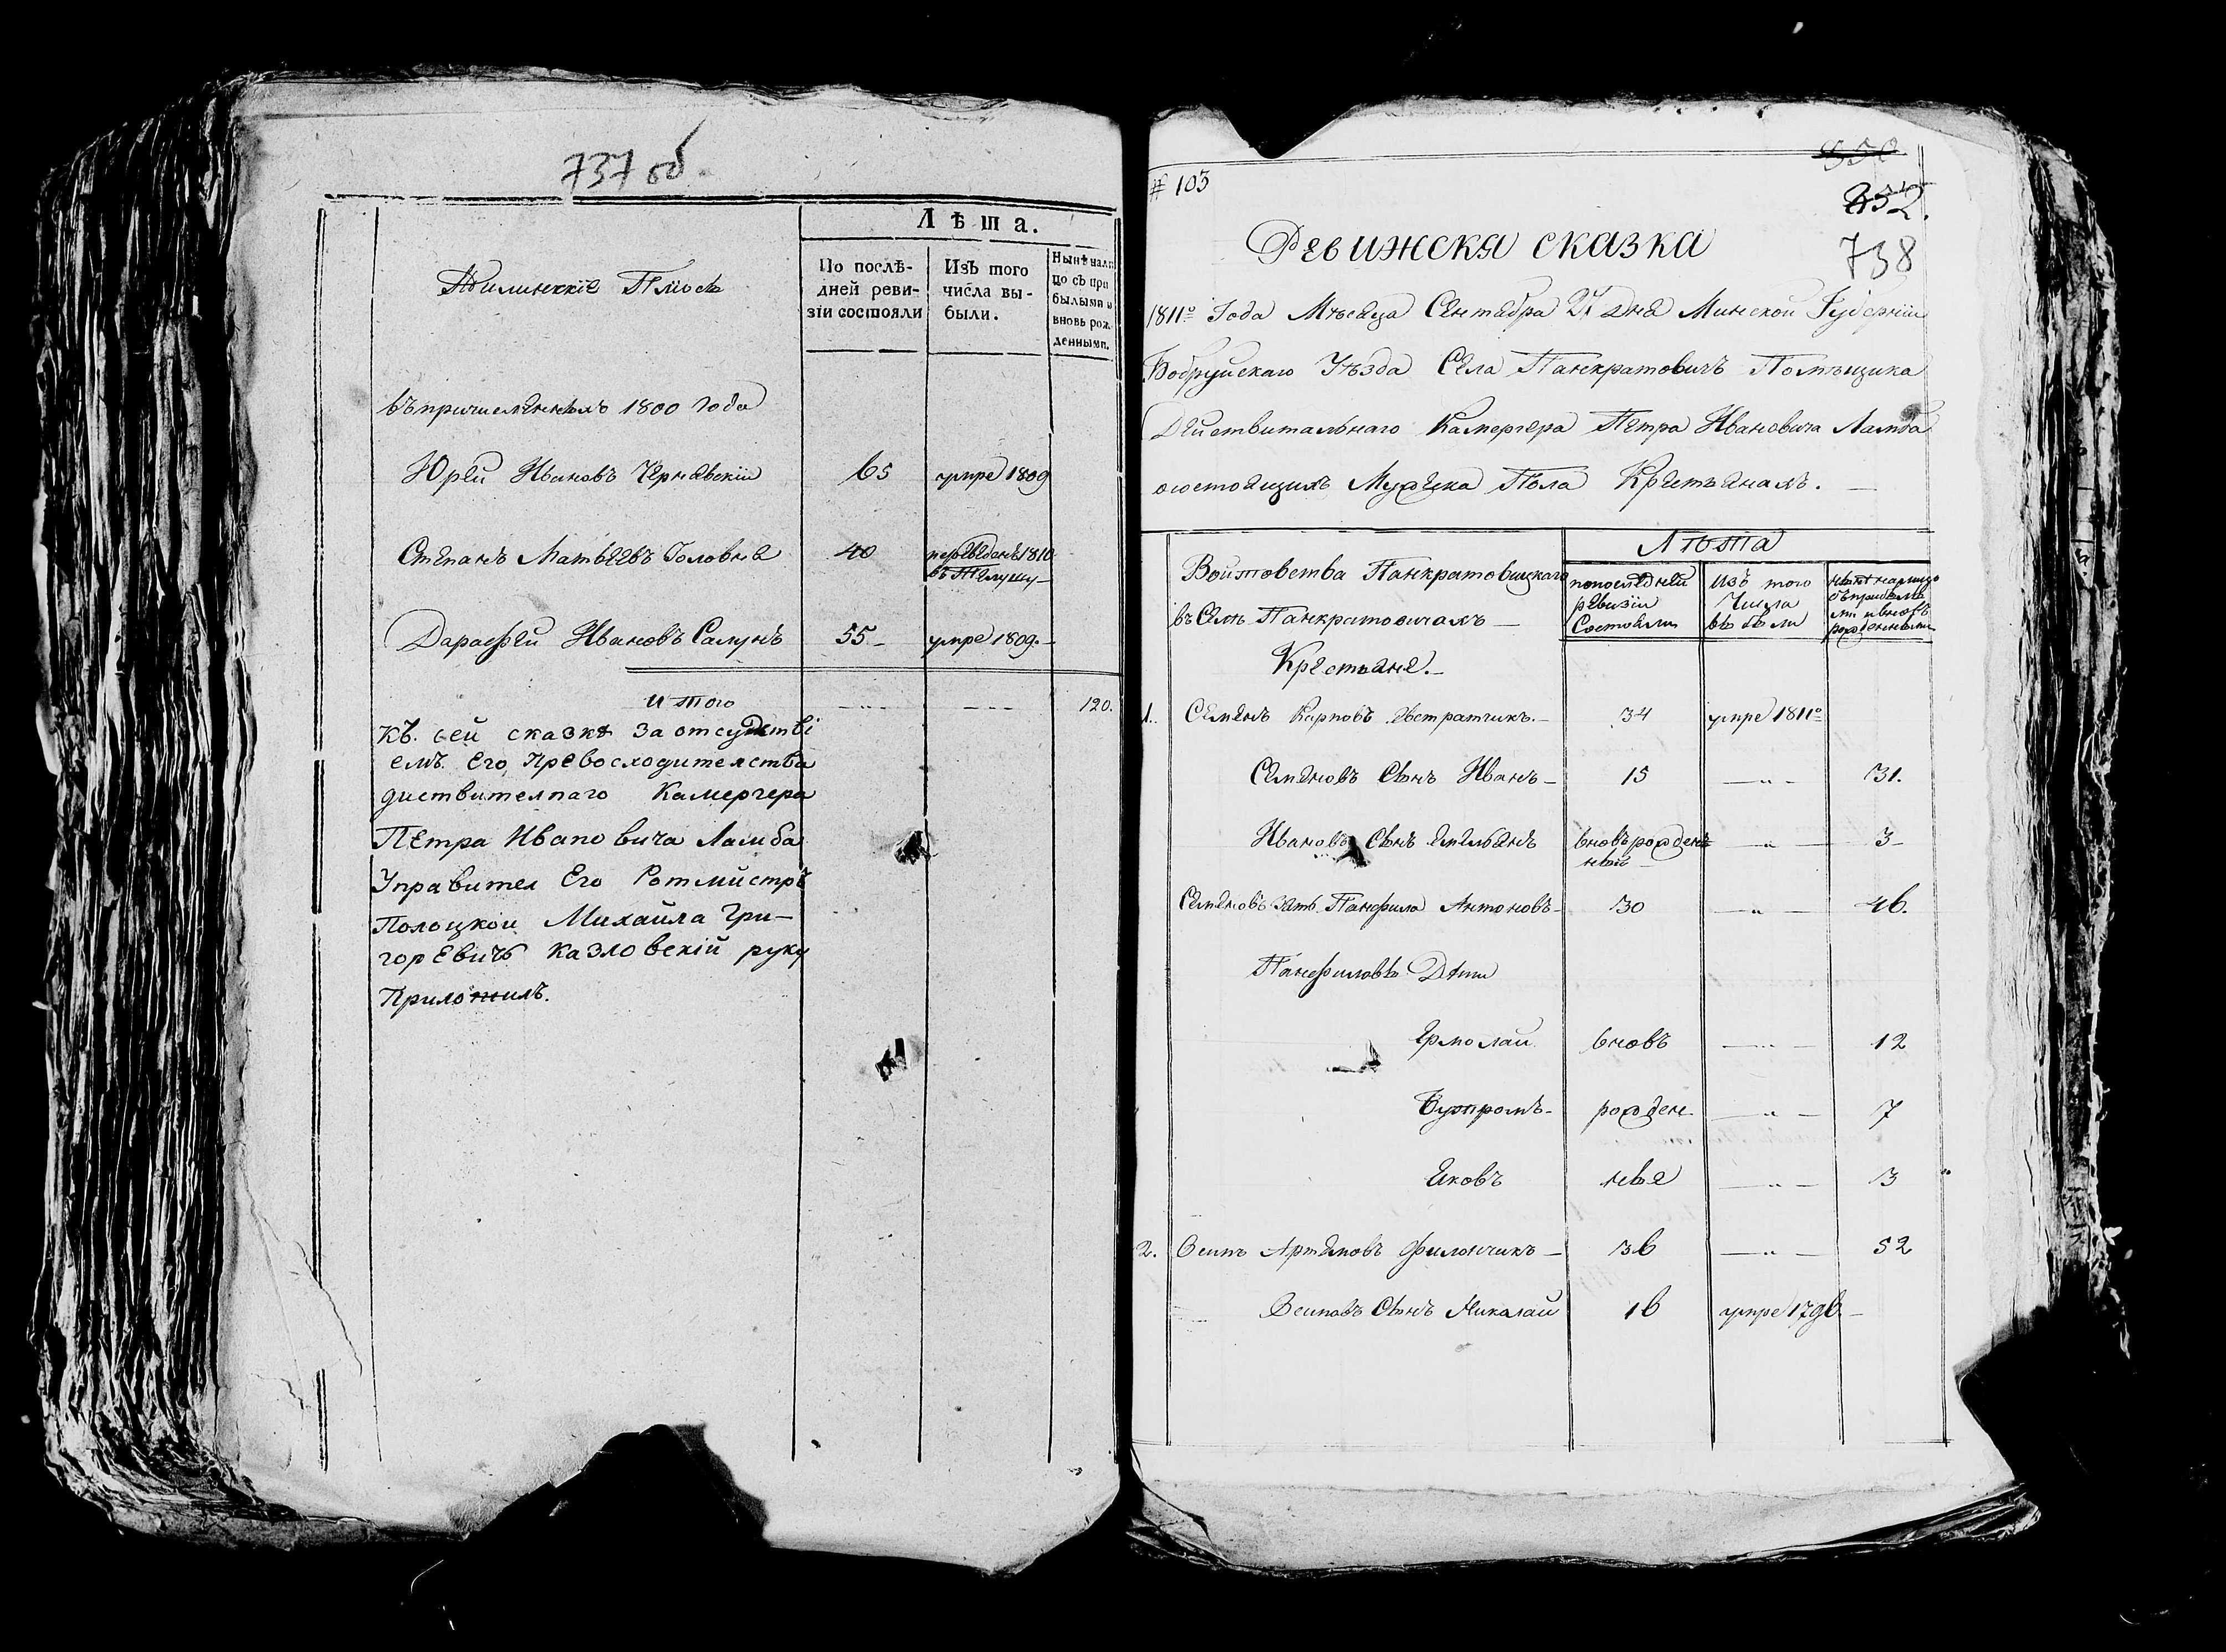 737 об.
Лѣта.
По послѣ-
дней реви-
зіи состояли
Изъ того
числа вы-
были.
Нынѣ нали
цо съ при
былыми и
вновь рож.
денными.
въ причисленныхъ 1800 года
Юрей Ивановъ Чернявскій 65 умре 1809
Степанъ Матвѣевъ Головня 40 переведенъ 1810
въ Телушу
Дарафей Ивановъ Салунъ 55 умре 1809.
итого 120.
Къ. сей сказкѣ За отсудстві
емъ. Его Превосходителства
диствителнаго Камергера
Петра Ивановича Ламба
Управител Его Ротмистръ
Полоцкои Михайла Гри-
горевичъ Казловскій руку
Приложилъ.
№ 103
850
252.
738
Ревижскя сказка
1811го Года Мѣсяца Сентября 27 дня Минской Губерніи
Бобруйскаго Уѣзда Села Панкратовичъ Помѣщика
Действительнаго Камергера Петра Ивановича Ламба
осостоящихъ Мужеска Пола Крестьянахъ.
Войтовства Панкратовицкаго
въ Селѣ Панкратовичахъ
Лѣта
попоследней
ревизіи
Состояли
изъ того
Числа
выбыли
нынѣ налицо
съ прибылы
ми и вновь
рожденными
Крестьяне.
1. Семенъ Карповъ Евстратчикъ. 34 умре 1811го
Семеновъ Сынъ Иванъ 15 31.
Ивановъ Сынъ Емельянъ вновърожден 3
ный
Семеновъ Зять Панфило Антоновъ 30 46.
Панфиловы Дѣти
Ермолай вновь 12
рожден 7
Яковъ ные 3
2. Осипъ Артемовъ Филончикъ 36 52
Осиповъ Сынъ Николай 16 умре 1796.